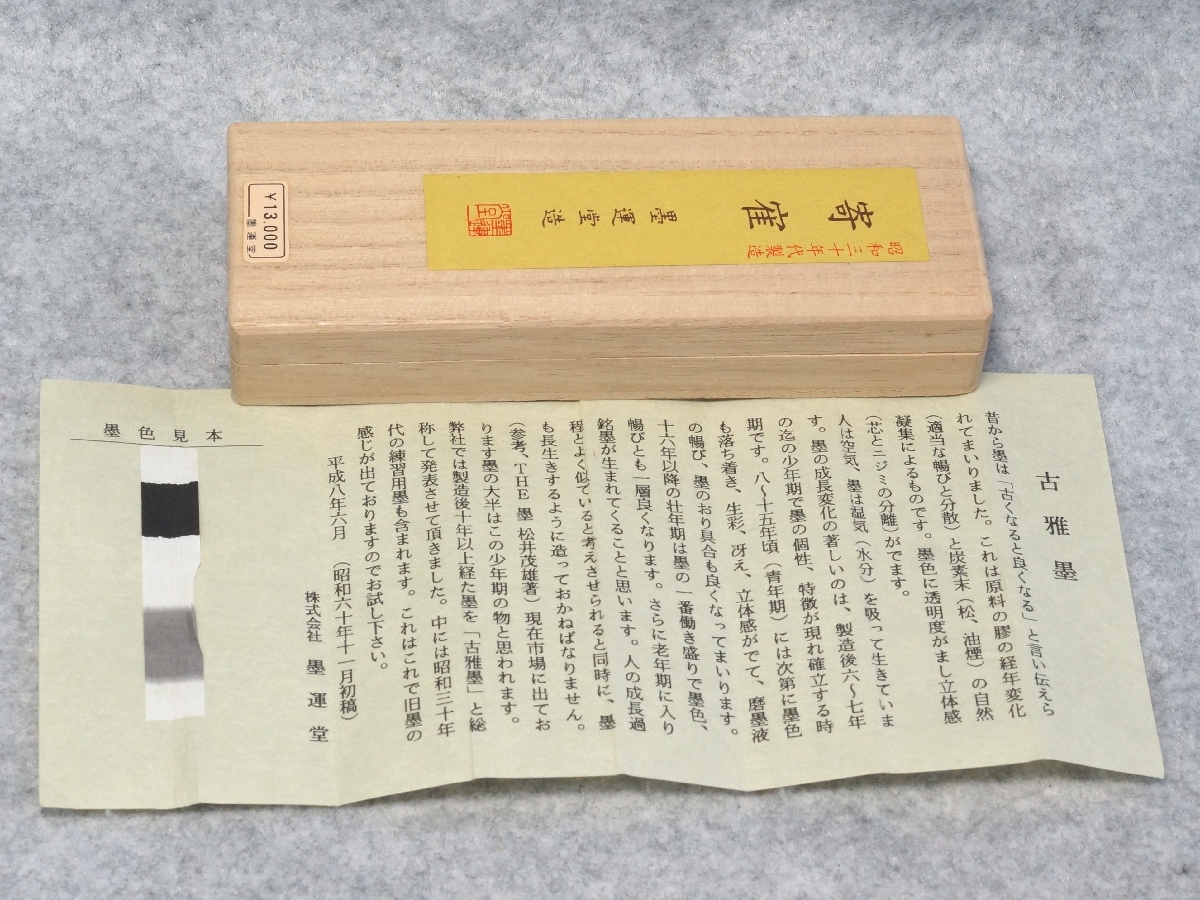 ¥13,000
墨運堂
昭和三十年代製造
墨運堂造
古雅墨
昔から墨は「古くなると良くなる」と言い伝えら
れてまいりました。これは原料の膠の経年変化
(適当な暢びと分散)と炭素末(松、油煙)の自然
凝集によるものです。墨色に透明度がまし立体感
(芯とニジミの分離)がでます。
人は空気、墨は湿気(水分)を吸って生きていま
す。墨の成長変化の著しいのは、製造後六〜七年
の迄の少年期で墨の個性、特徴が現れ確立する時
期です。八〜十五年頃(青年期)には次第に墨色
も落ち着き、生彩、冴え、立体感がでて、磨墨液
の暢び、墨のおり具合も良くなってまいります。
十六年以降の壮年期は墨の一番働き盛りで墨色、
暢びとも一層良くなります。さらに老年期に入り
銘墨が生まれてくることと思います。人の成長過
程とよく似ていると考えさせられると同時に、墨
も長生きするように造っておかねばなりません。
(参考、THE 墨 松井茂雄著)現在市場に出てお
ります墨の大半はこの少年期の物と思われます。
弊社では製造後十年以上経た墨を「古雅墨」と総
称して発表させて頂きました。中には昭和三十年
代の練習用墨も含まれます。これはこれで旧墨の
感じが出ておりますのでお試し下さい。
平成八年六月 (昭和六十年十一月初稿)
株式会社 墨運堂
墨色見本